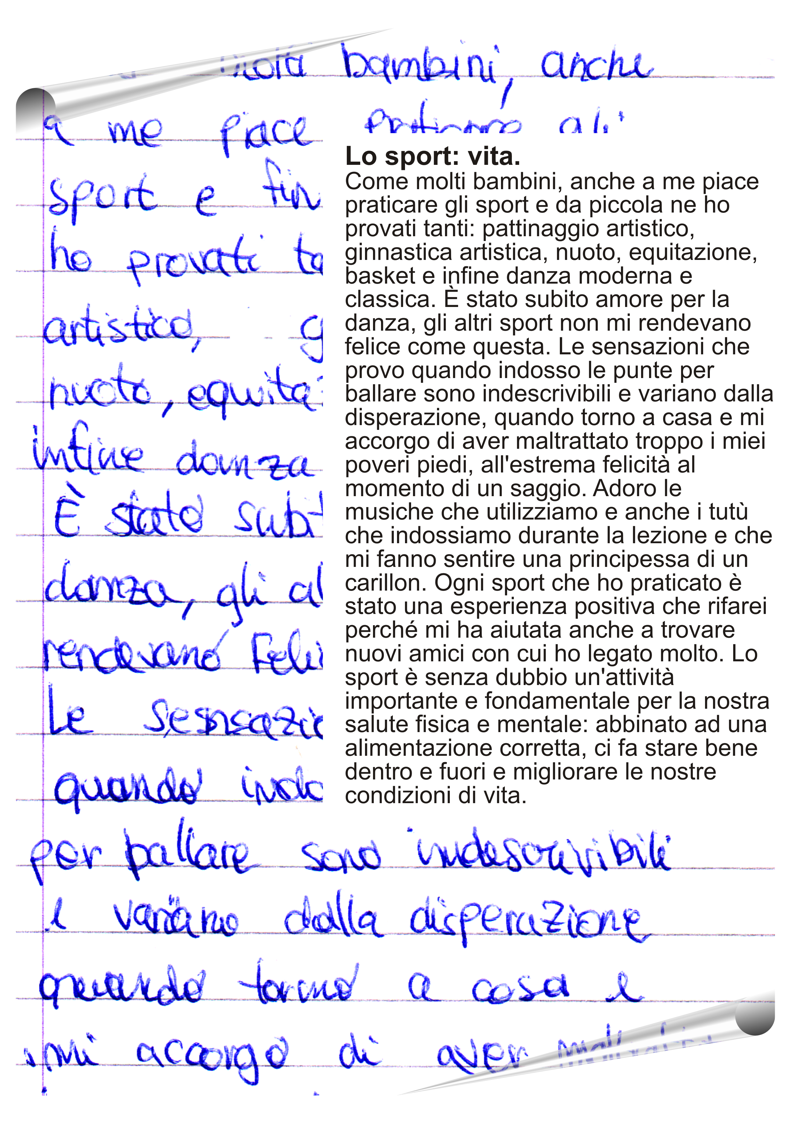 molti bambini, anche
a me piace
sport e fin
ho provati ta
artistico, g
nuoto, equita
infine danza
È stato subit
danza, gli al
rendevano feli
Le sesnsazio
quando indo
per ballare sono indescrivibili
e variano dalla disperazione
quando torno a casa e
mi accorgo di aver
Lo sport: vita.
Come molti bambini, anche a me piace
praticare gli sport e da piccola ne ho
provati tanti: pattinaggio artistico,
ginnastica artistica, nuoto, equitazione,
basket e infine danza moderna e
classica. È stato subito amore per la
danza, gli altri sport non mi rendevano
felice come questa. Le sensazioni che
provo quando indosso le punte per
ballare sono indescrivibili e variano dalla
disperazione, quando torno a casa e mi
accorgo di aver maltrattato troppo i miei
poveri piedi, all'estrema felicità al
momento di un saggio. Adoro le
musiche che utilizziamo e anche i tutù
che indossiamo durante la lezione e che
mi fanno sentire una principessa di un
carillon. Ogni sport che ho praticato è
stato una esperienza positiva che rifarei
perché mi ha aiutata anche a trovare
nuovi amici con cui ho legato molto. Lo
sport è senza dubbio un'attività
importante e fondamentale per la nostra
salute fisica e mentale: abbinato ad una
alimentazione corretta, ci fa stare bene
dentro e fuori e migliorare le nostre
condizioni di vita.